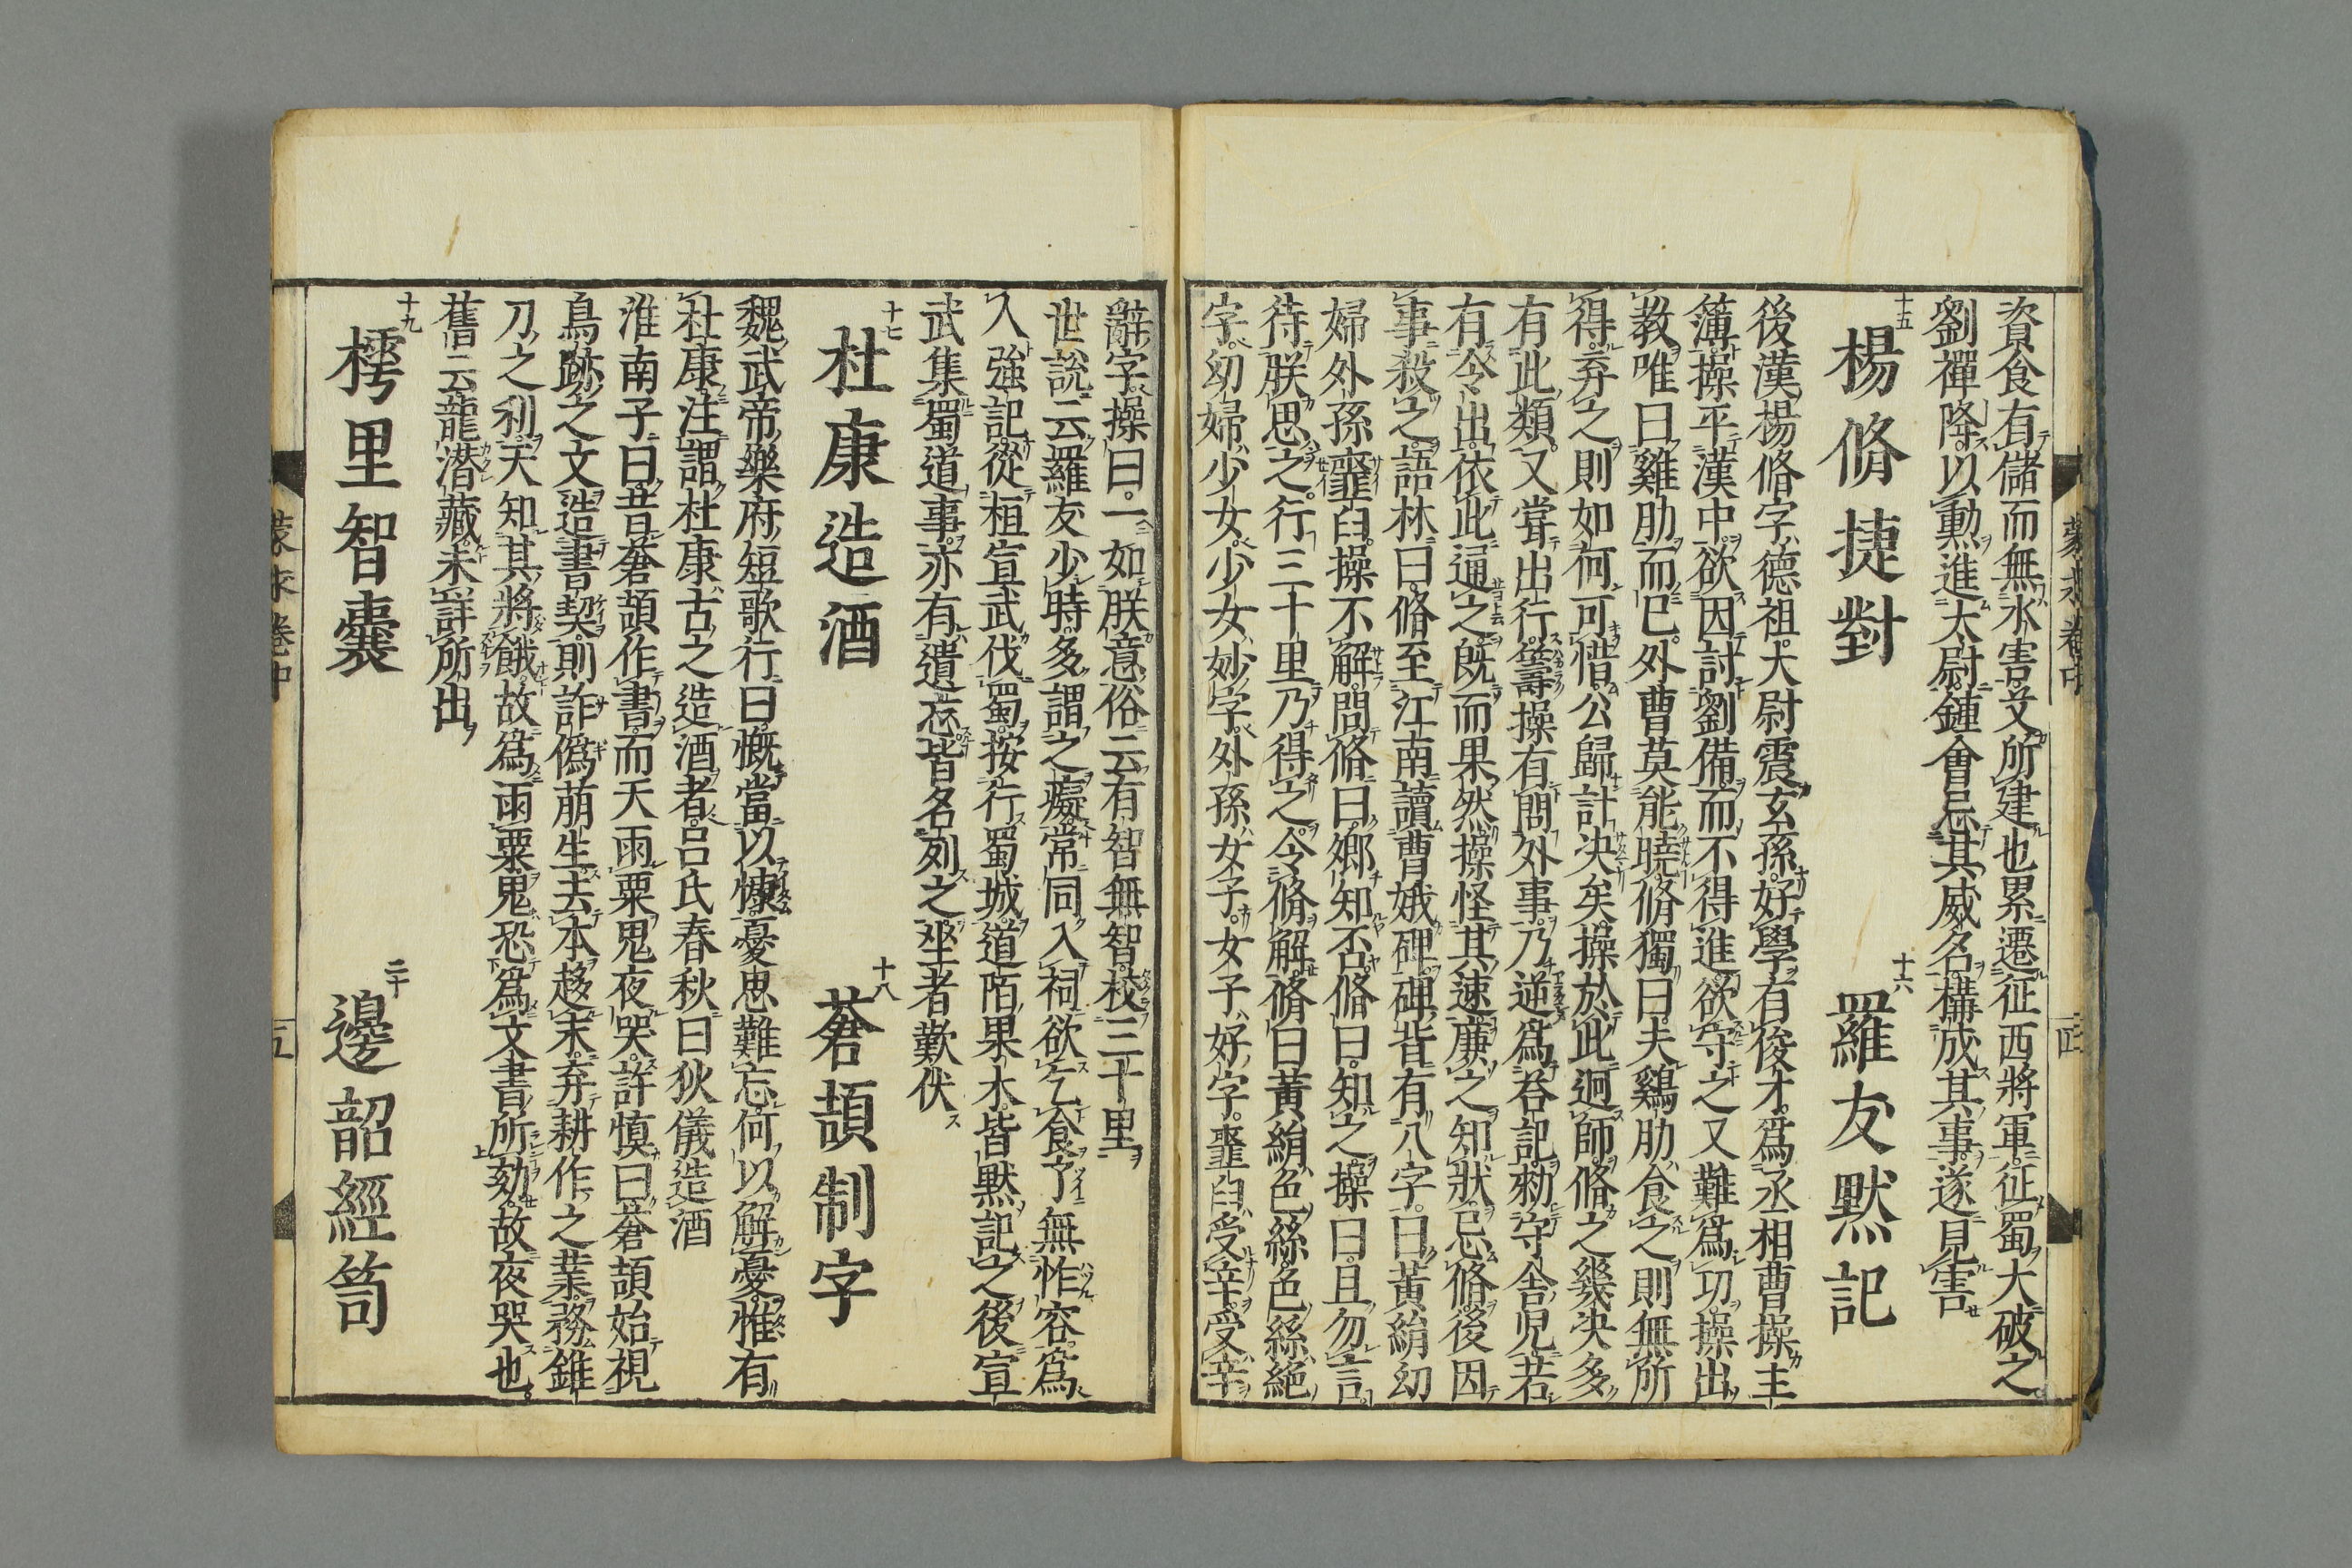 資食有儲而無水害艾所建也累遷征西將軍征蜀大破之
劉禪降以勲進大尉鍾會忌其威名構成其事遂見害
十五 楊脩捷對 十六 羅友默記
後漢楊脩字德祖大尉震玄孫好學有俊才爲丞相曹操主
簿操平漢中欲因討劉備而不得進欲守之又難爲功操出
教唯曰雞肋而已外曹莫能曉脩獨曰夫鷄肋食之則無所
得弃之則如何可惜公歸計決矣操於此迴師脩之幾決多
有此類又嘗出行籌操有問外事乃逆爲荅記勑守舍児若
有令出依此通之既而果然操怪其速廉之知狀忌脩後因
事殺之語林曰脩至江南讀曹娥碑碑背有八字曰黃絹幼
婦外孫虀臼操不解問脩曰鄉知否脩曰知之操曰且勿言
待朕思之行三十里乃得之令脩解脩曰黃絹色絲色絲絕
字幼婦少女少女妙字外孫女子女子好字虀臼受辛受辛
辭字操曰一如朕意俗云有智無智校三十里
世說云羅友少時多謂之癡常同入祠欲乞食了無怍容爲
人強記從桓宣武伐蜀按行蜀城道陌果木皆默記之後宣
武集蜀道事亦有遺忘皆名列之坐者歎伏
十七 杜康造酒 十八 蒼頡制字
魏武帝樂府短歌行曰慨當以慷憂思難忘何以解憂惟有
杜康注謂杜康古之造酒者呂氏春秋曰狄儀造酒
淮南子曰昔蒼頡作書而天雨粟鬼夜哭許慎曰蒼頡始視
鳥跡之文造書契則詐僞萌生去本趍末弃耕作之業務錐
刀之利天知其將餓故爲雨粟鬼恐爲文書所劾故夜哭也
舊云龍潜藏未詳所出
十九 樗里智囊 二十 邊韶經笥
蒙求卷中
五